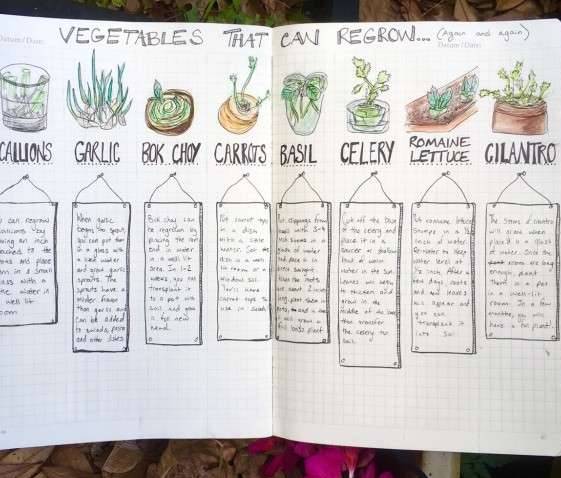 Datum / Date:
VEGETABLES THAT CAN REGROW... (Again and again)
Datum / Date:
CALLIONS
GARLIC
BOK CHOY
CARROTS
BASIL
CELERY
ROMAINE
LETTUCE
CILANTRO
can regrow
allions by
ing an inch
tached to the
and place
in a small
s with a
water in
well lit
oom
When garlic
begins to sprout,
you can put them
in a glass with
a little water
and grow garlic
sprouts. The
sprouts have a
milder flavor
than garlic and
can be added
to salads, pasta
and other dishes.
Bok choy can
be regrown by
placing the root
end in water
in a well lit
area. In 1-2
weeks you can
transplant it
to a pot with
soil and grow
a full new
head.
Put carrot tops
in a dish
with a little
water. Set the
dish in a well
lit room or a
window sill.
You'll have
carrot tops to
use in salads.
Put clippings from
basil with 3-4
inch stems in a
glass of water
and place it in
direct sunlight.
When the roots
are about 2 inches
long, plant them in
pots and
it will grow a
full basil plant.
Cut off the base
of the celery and
place it in a
saucer or shallow
bowl of warm
water in the sun.
Leaves will begin
to thicken and
grow in the
middle of the base
then transfer
the celery to
soil.
Put romaine lettuce
stumps in a 1/2
inch of water.
Re-water to keep
water level at
1/2 inch. After a
few days, roots
and new leaves
will appear and
you can
transplant it
into soil.
The stems of cilantro
will grow when
placed in a glass
of water. Once the
stems are long
enough, plant
them in a pot
in a well-lit
room. In a few
months, you will
have a full plant!